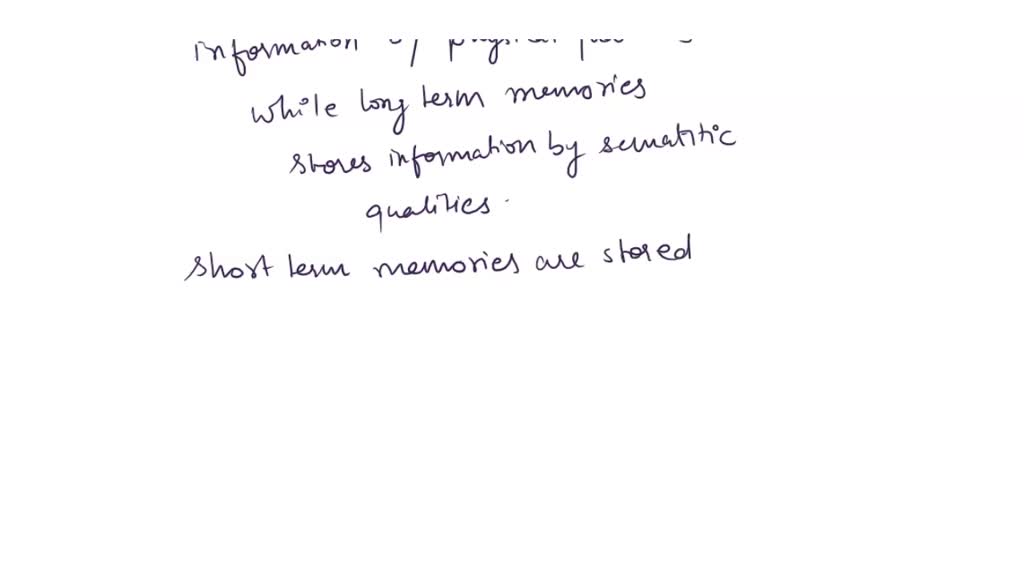 information by physical
while long term memories
stores information by sematitic
qualities.
short term memories are stored